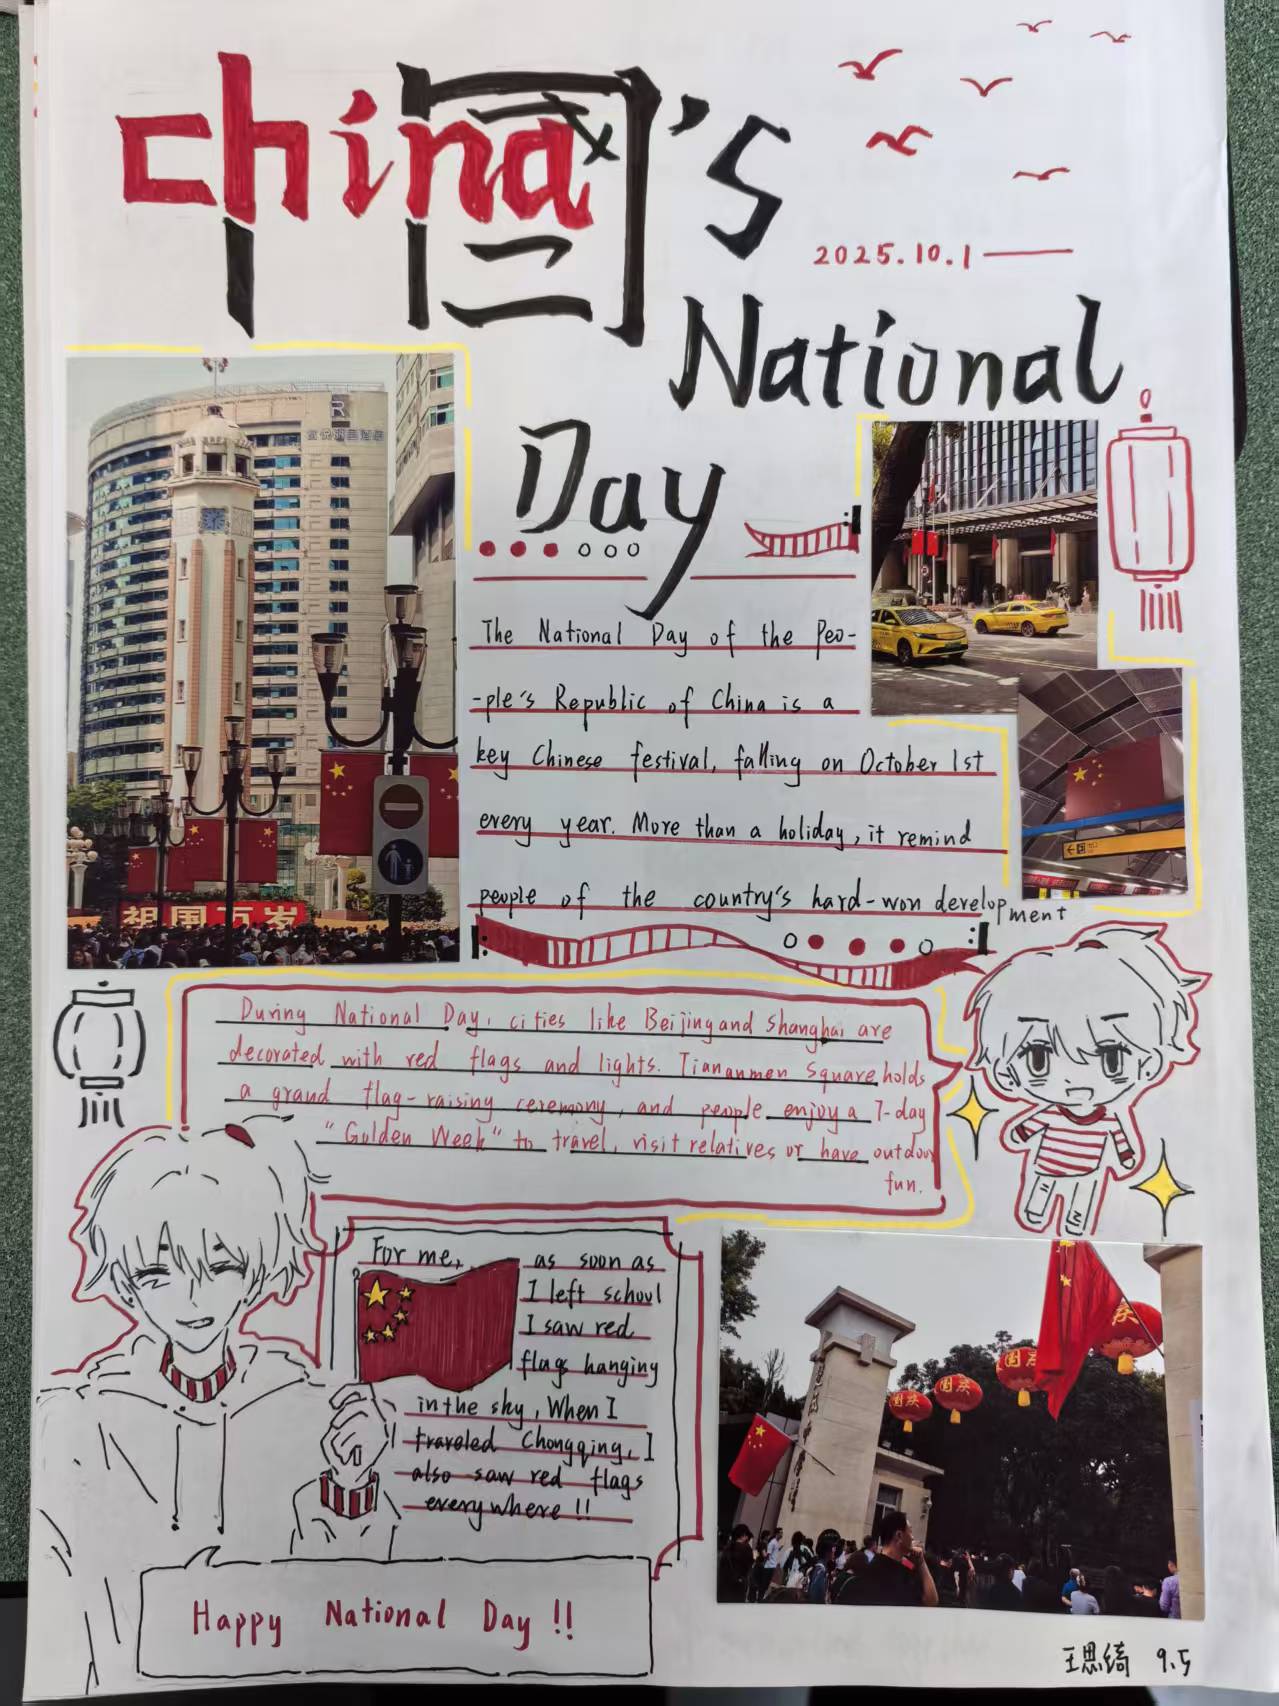 china's
中国
2025.10.1
National
Day
The National Day of the Peo-
-ple's Republic of China is a
key Chinese festival, falling on October 1st
every year. More than a holiday, it remind
people of the country's hard-won development
祖国万岁
During National Day, cities like Beijing and Shanghai are
decorated with red flags and lights. Tiananmen Square holds
a grand flag-raising ceremony, and people enjoy a 7-day
"Golden Week" to travel, visit relatives or have outdoor
fun.
For me, as soon as
I left school
I saw red
flags hanging
in the sky, When I
traveled Chongqing, I
also saw red flags
everywhere !!
国庆
国庆
国庆
庆
Happy National Day !!
王思绮 9.5